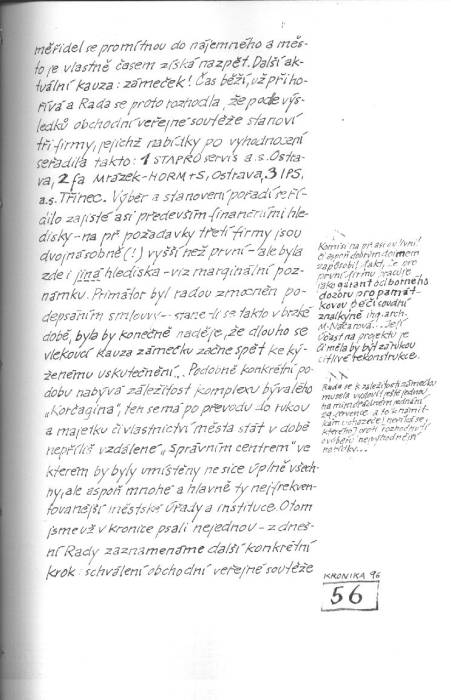 měřidel se promítnou do nájemného a měs-
to je vlastně časem získá nazpět. Další ak-
tuální kauza: zámeček! Čas běží, už přího-
řívá a Rada se proto rozhodla, že podle výs-
ledků obchodní veřejné soutěže stanoví
tři firmy, jejichž nabídky po vyhodnocení
seřadila takto: 1 STAPRO servis a.s. Ostra-
va, 2 fa Mrázek-HORM+S, Ostrava, 3 IPS,
a.s. Třinec. Výběr a stanovení pořadí se ří-
dilo zajisté asi především finančními hle-
disky - na př. požadavky třetí firmy jsou
dvojnásobně (!) vyšší než první - ale byla
zde i jiná hlediska - viz marginální poz-
námku. Primátor byl radou zmocněn po-
depsáním smlouvy - stane-li se takto v brzké
době, byla by konečně naděje, že dlouho se
vlekoucí kauza zámečku začne spět ke ký-
ženému uskutečnění... Podobně konkrétní po-
dobu nabývá záležitost komplexu bývalého
„Korčagina", ten se má po převodu do rukou
a majetku či vlastnictví města stát v době
nepříliš vzdálené „Správním centrem" ve
kterém by byly umístěny ne sice úplně všech-
ny, ale aspoň mnohé a hlavně ty nejfrekven-
tovanější městské úřady a instituce. O tom
jsme už v kronice psali nejednou - z dneš-
ní Rady zaznamenáme další konkrétní
krok: schválení obchodní veřejné soutěže
Komisi na přiását
či aspoň dobrým
zapůsobil fakt, že pro
první firmu pracuje
jako garant odborného
dozoru pro památ-
kovou péči soudní
znalkyně ing. arch.
M. Nacarová... Její
účast na projektu je
či měla by být zárukou
citlivé rekonstrukce.
Rada se k záležitosti zámečku
musela vydovit ještě jednou
na mimořádném jednání
27. července, a to k námit-
kám uchazečů
proti rozhodnutí
o výběru nejvhodnější
nabídky...
KRONIKA 96
56